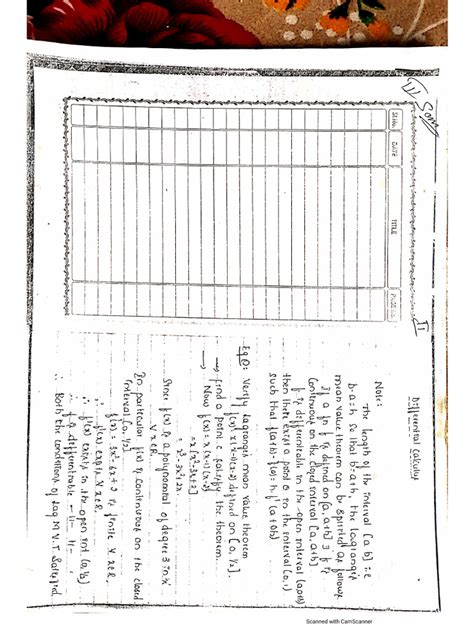 II Sem
Sl.No. DATE TITLE
II
Differential calculus
Note:
The length of the interval [a b] i.e
b-a=h so that b=a+h, the Lagranges
mean value theorem can be
If a fn f is defined on [a, a+h] ∋ f is
continuous on the closed interval [a, a+h]
f is differentiable in the open interval (a, a+h)
then there exist a point θ in the interval (0,1)
such that f(a+h) - f(a) = h f'(a+θh)
Eg①: Verify Lagranges mean value theorem
f(x) = x(x-1)(x-2) defined on [0, 1/2]
→ find a point c, satisfy the theorem.
→ Now f(x) = x(x-1)(x-2)
= x[x²-3x+2]
= x³-3x²+2x.
Since f(x) is a polynomial of degree 3 in x
∀ x∈R.
In particular f(x) is continuous on the closed
interval [0, 1/2]
f'(x) = 3x²-6x+2 is finite ∀ x∈R.
∴ f'(x) exists ∀ x∈R.
∴ f'(x) exists in the open int (0, 1/2)
∴ f is differentiable
∴ Both the conditions of Lag M.V.T. Satisfied
Scanned with CamScanner